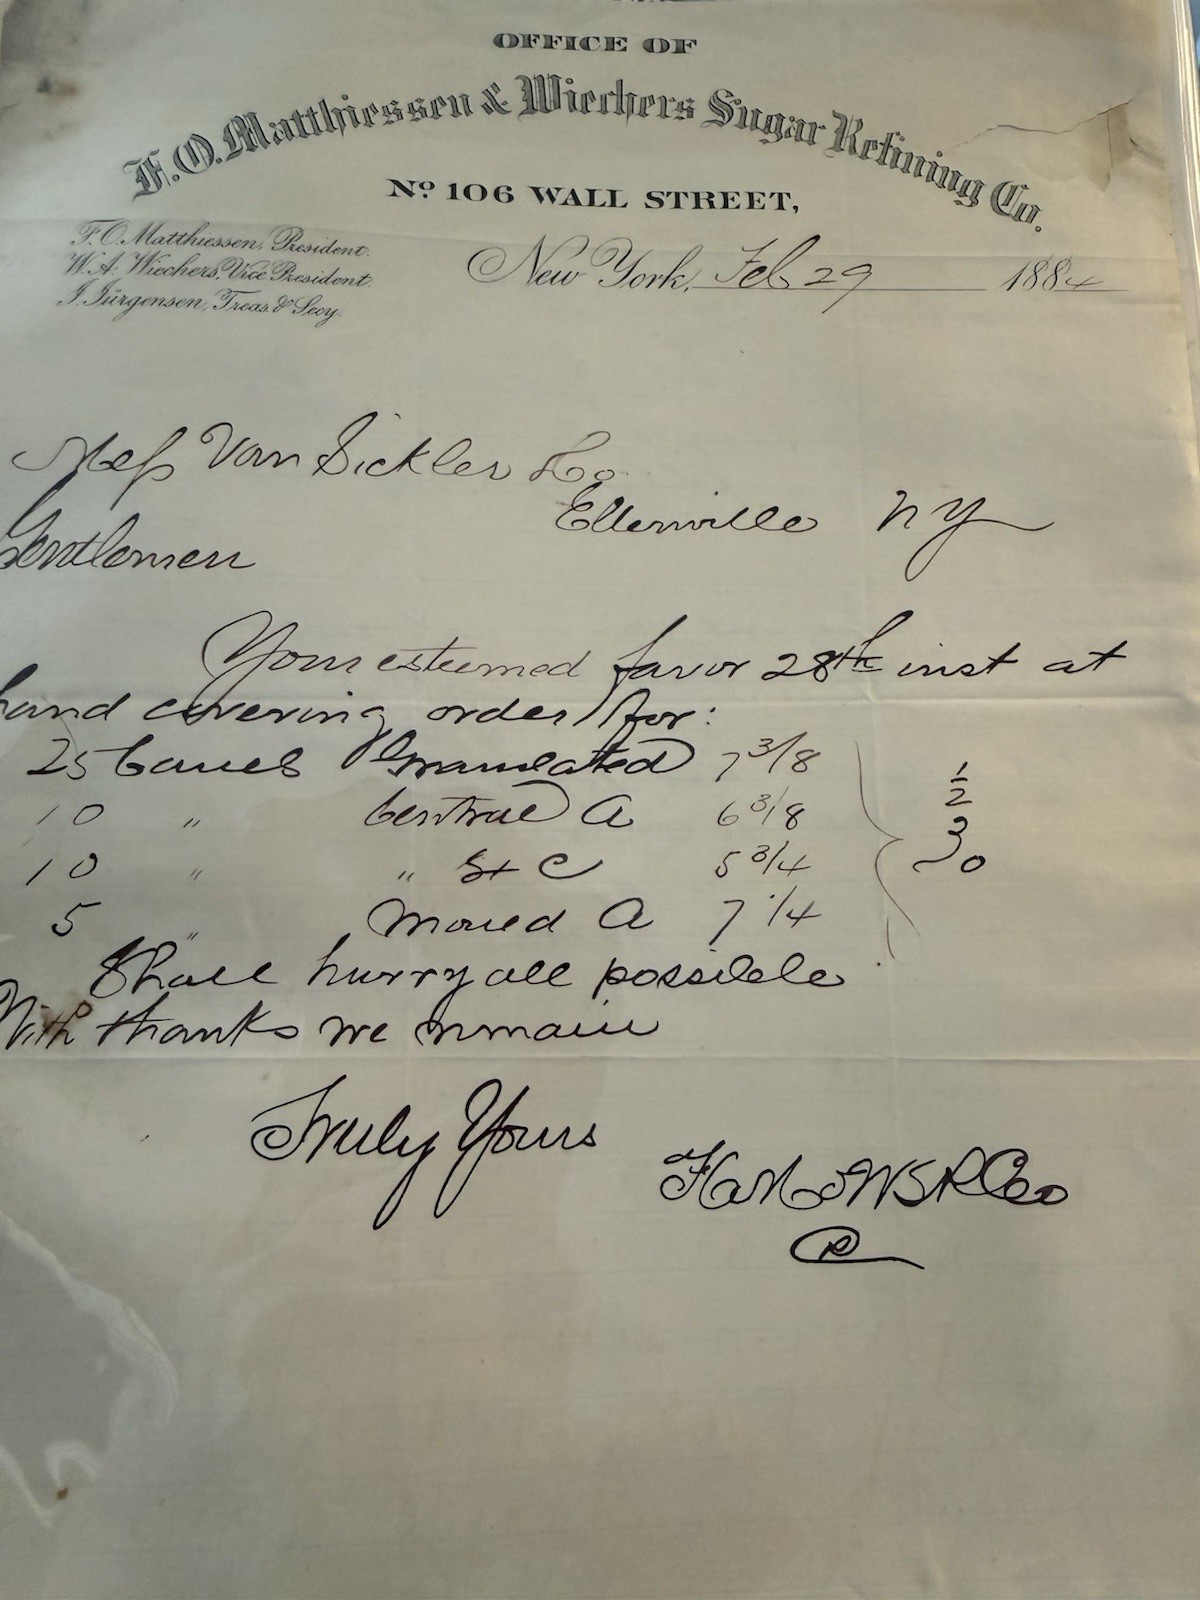 OFFICE OF
F. O. Matthiessen & Wiechers Sugar Refining Co.
No 106 WALL STREET,
F. O. Matthiessen, President.
W. A. Wiechers, Vice President.
J. Jürgensen, Treas. & Secy.
New York, Feb 29 1884
Mess Van Sickler & Co
Ellenville NY
Gentlemen
Your esteemed favor 28th inst at
hand covering order for:
25 barrels Granulated 7 3/8
10 " Central A 6 3/8
10 " " C 5 3/4
5 " Mould A 7 1/4
1/2
30
Shall hurry all possible
With thanks we remain
Truly Yours
W S R Co